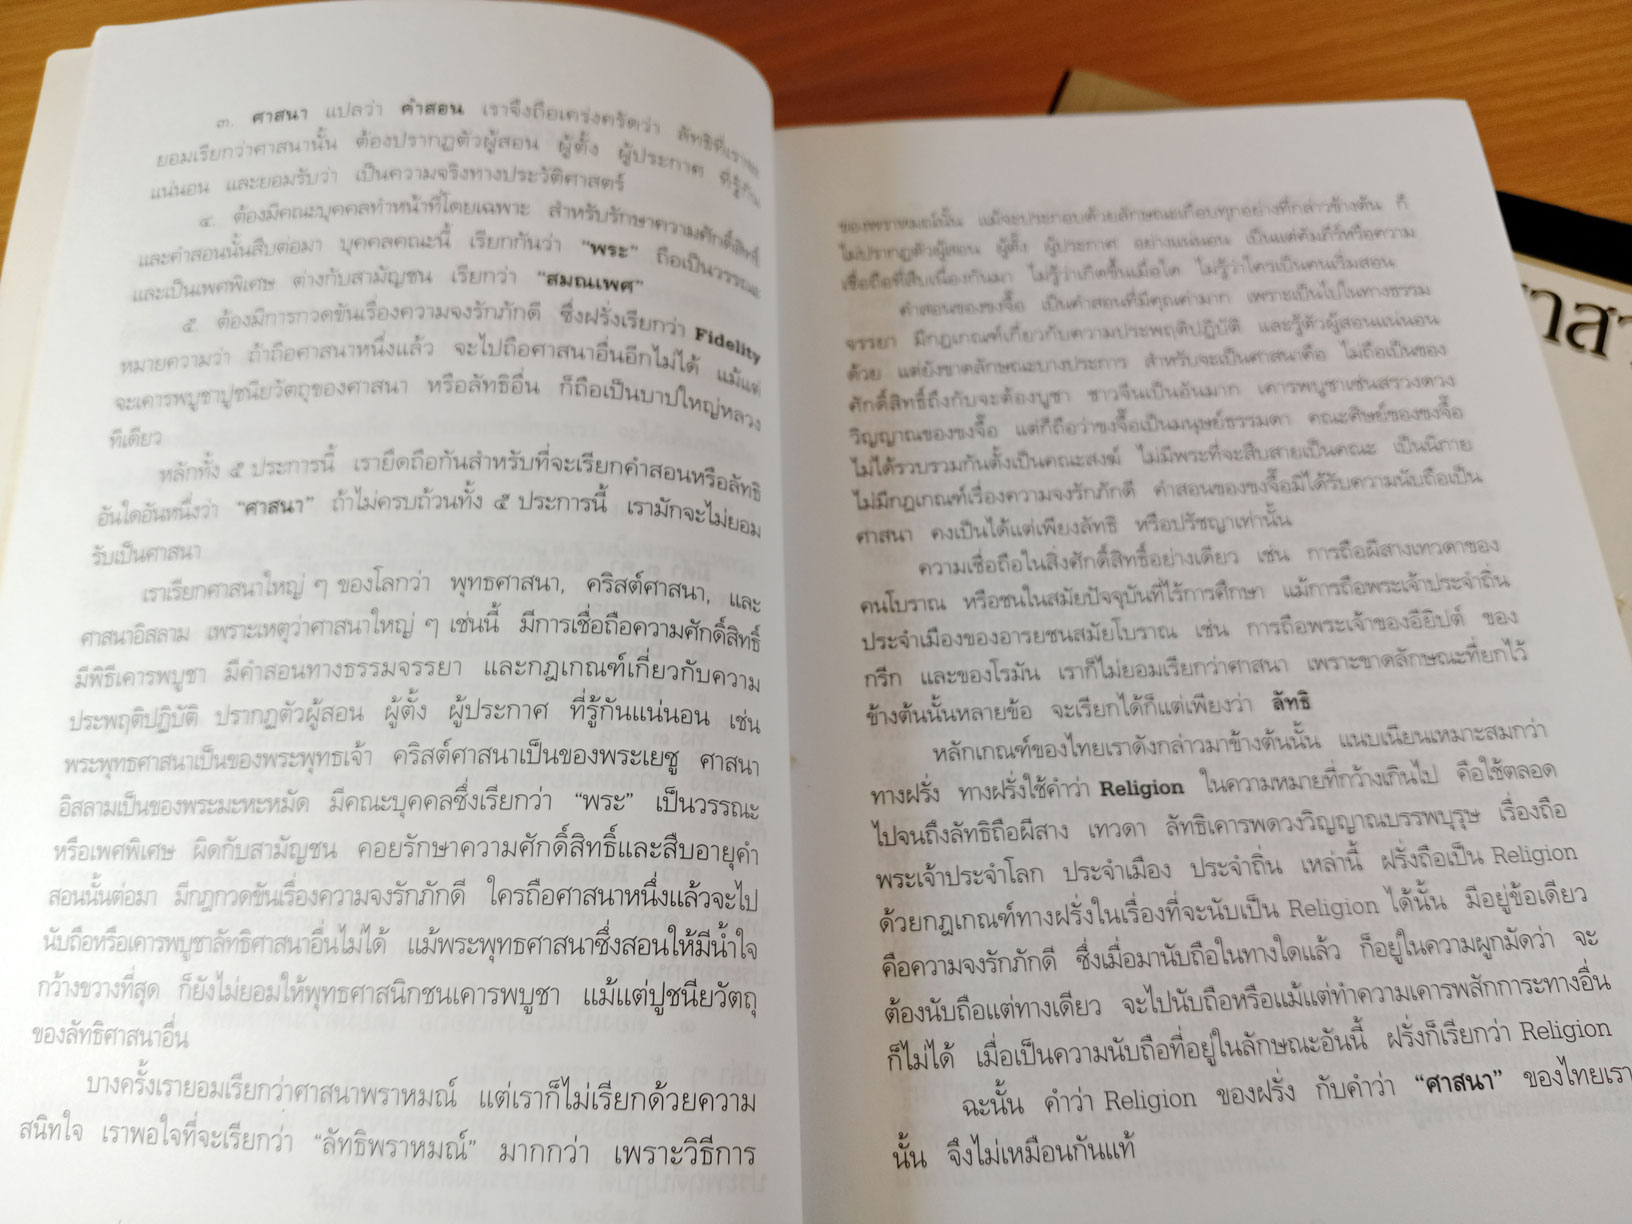 ๓. ศาสนา แปลว่า คำสอน เราจึงถือเคร่งครัดว่า ลัทธิที่เราจะ
ยอมเรียกว่าศาสนานั้น ต้องปรากฏตัวผู้สอน ผู้ตั้ง ผู้ประกาศ ที่รู้กัน
แน่นอน และยอมรับว่า เป็นความจริงทางประวัติศาสตร์
๔. ต้องมีคณะบุคคลทำหน้าที่โดยเฉพาะ สำหรับรักษาความศักดิ์สิทธิ์
และคำสอนนั้นสืบต่อมา บุคคลคณะนี้ เรียกกันว่า “พระ” ถือเป็นวรรณะ
และเป็นเพศพิเศษ ต่างกับสามัญชน เรียกว่า “สมณเพศ”
๕. ต้องมีการกวดขันเรื่องความจงรักภักดี ซึ่งฝรั่งเรียกว่า Fidelity
หมายความว่า ถ้าถือศาสนาหนึ่งแล้ว จะไปถือศาสนาอื่นอีกไม่ได้ แม้แต่
จะเคารพบูชาปูชนียวัตถุของศาสนา หรือลัทธิอื่น ก็ถือเป็นบาปใหญ่หลวง
ทีเดียว
หลักทั้ง ๕ ประการนี้ เรายึดถือกันสำหรับที่จะเรียกคำสอนหรือลัทธิ
อันใดอันหนึ่งว่า “ศาสนา” ถ้าไม่ครบถ้วนทั้ง ๕ ประการนี้ เรามักจะไม่ยอม
รับเป็นศาสนา
เราเรียกศาสนาใหญ่ ๆ ของโลกว่า พุทธศาสนา, คริสต์ศาสนา, และ
ศาสนาอิสลาม เพราะเหตุว่าศาสนาใหญ่ ๆ เช่นนี้ มีการเชื่อถือความศักดิ์สิทธิ์
มีพิธีเคารพบูชา มีคำสอนทางธรรมจรรยา และกฎเกณฑ์เกี่ยวกับความ
ประพฤติปฏิบัติ ปรากฏตัวผู้สอน ผู้ตั้ง ผู้ประกาศ ที่รู้กันแน่นอน เช่น
พระพุทธศาสนาเป็นของพระพุทธเจ้า คริสต์ศาสนาเป็นของพระเยซู ศาสนา
อิสลามเป็นของพระมะหะหมัด มีคณะบุคคลซึ่งเรียกว่า “พระ” เป็นวรรณะ
หรือเพศพิเศษ ผิดกับสามัญชน คอยรักษาความศักดิ์สิทธิ์และสืบอายุคำ
สอนนั้นต่อมา มีกฎกวดขันเรื่องความจงรักภักดี ใครถือศาสนาหนึ่งแล้วจะไป
นับถือหรือเคารพบูชาลัทธิศาสนาอื่นไม่ได้ แม้พระพุทธศาสนาซึ่งสอนให้มีน้ำใจ
กว้างขวางที่สุด ก็ยังไม่ยอมให้พุทธศาสนิกชนเคารพบูชา แม้แต่ปูชนียวัตถุ
ของลัทธิศาสนาอื่น
บางครั้งเรายอมเรียกว่าศาสนาพราหมณ์ แต่เราก็ไม่เรียกด้วยความ
สนิทใจ เราพอใจที่จะเรียกว่า “ลัทธิพราหมณ์” มากกว่า เพราะวิธีการ
ของพราหมณ์นั้น แม้จะประกอบด้วยลักษณะเกือบทุกอย่างที่กล่าวข้างต้น ก็
ไม่ปรากฏตัวผู้สอน ผู้ตั้ง ผู้ประกาศ อย่างแน่นอน เป็นแต่คัมภีร์หรือความ
เชื่อถือที่สืบเนื่องกันมา ไม่รู้ว่าเกิดขึ้นเมื่อใด ไม่รู้ว่าใครเป็นคนเริ่มสอน
คำสอนของขงจื๊อ เป็นคำสอนที่มีคุณค่ามาก เพราะเป็นไปในทางธรรม
จรรยา มีกฎเกณฑ์เกี่ยวกับความประพฤติปฏิบัติ และรู้ตัวผู้สอนแน่นอน
ด้วย แต่ยังขาดลักษณะบางประการ สำหรับจะเป็นศาสนาคือ ไม่ถือเป็นของ
ศักดิ์สิทธิ์ถึงกับจะต้องบูชา ชาวจีนเป็นอันมาก เคารพบูชาเซ่นสรวงดวง
วิญญาณของขงจื๊อ แต่ก็ถือว่าขงจื๊อเป็นมนุษย์ธรรมดา คณะศิษย์ของขงจื๊อ
ไม่ได้รวบรวมกันตั้งเป็นคณะสงฆ์ ไม่มีพระที่จะสืบสายเป็นคณะ เป็นนิกาย
ไม่มีกฎเกณฑ์เรื่องความจงรักภักดี คำสอนของขงจื๊อมิได้รับความนับถือเป็น
ศาสนา คงเป็นได้แต่เพียงลัทธิ หรือปรัชญาเท่านั้น
ความเชื่อถือในสิ่งศักดิ์สิทธิ์อย่างเดียว เช่น การถือผีสางเทวดาของ
คนโบราณ หรือชนในสมัยปัจจุบันที่ไร้การศึกษา แม้การถือพระเจ้าประจำถิ่น
ประจำเมืองของอารยชนสมัยโบราณ เช่น การถือพระเจ้าของอียิปต์ ของ
กรีก และของโรมัน เราก็ไม่ยอมเรียกว่าศาสนา เพราะขาดลักษณะที่ยกไว้
ข้างต้นนั้นหลายข้อ จะเรียกได้ก็แต่เพียงว่า ลัทธิ
หลักเกณฑ์ของไทยเราดังกล่าวมาข้างต้นนั้น แนบเนียนเหมาะสมกว่า
ทางฝรั่ง ทางฝรั่งใช้คำว่า Religion ในความหมายที่กว้างเกินไป คือใช้ตลอด
ไปจนถึงลัทธิถือผีสาง เทวดา ลัทธิเคารพดวงวิญญาณบรรพบุรุษ เรื่องถือ
พระเจ้าประจำโลก ประจำเมือง ประจำถิ่น เหล่านี้ ฝรั่งถือเป็น Religion
ด้วยกฎเกณฑ์ทางฝรั่งในเรื่องที่จะนับเป็น Religion ได้นั้น มีอยู่ข้อเดียว
คือความจงรักภักดี ซึ่งเมื่อมานับถือในทางใดแล้ว ก็อยู่ในความผูกมัดว่า จะ
ต้องนับถือแต่ทางเดียว จะไปนับถือหรือแม้แต่ทำความเคารพสักการะทางอื่น
ก็ไม่ได้ เมื่อเป็นความนับถือที่อยู่ในลักษณะอันนี้ ฝรั่งก็เรียกว่า Religion
ฉะนั้น คำว่า Religion ของฝรั่ง กับคำว่า “ศาสนา” ของไทยเรา
นั้น จึงไม่เหมือนกันแท้